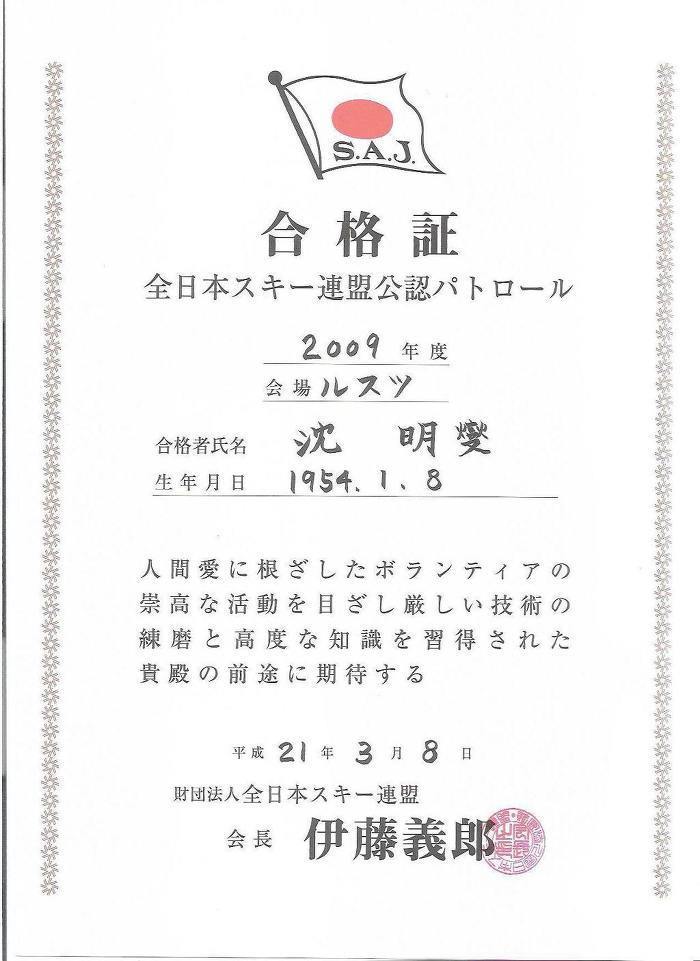 S.A.J.
合格証
全日本スキー連盟公認パトロール
2009年度
会場 ルスツ
合格者氏名 沈 明燮
生年月日 1954.1.8
人間愛に根ざしたボランティアの
崇高な活動を目ざし厳しい技術の
練磨と高度な知識を習得された
貴殿の前途に期待する
平成21年3月8日
財団法人全日本スキー連盟
会長 伊藤義郎